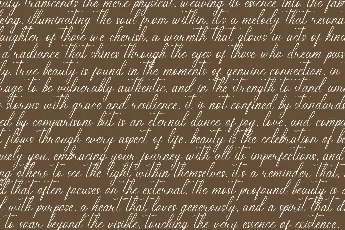 transcends the mere physical, weaving its essence into the fab
illuminating the soul from within. it's a melody that resona
laughter of those we cherish, a warmth that glows in acts of kin
a radiance that shines through the eyes of those who dream pas
true beauty is found in the moments of genuine connection, in
to be vulnerably authentic, and in the strength to stand
storms with grace and resilience. it is not confined by standards
by comparisons but is an eternal dance of joy, love, and comp
flows through every aspect of life. beauty is the celebration of be
embracing your journey with all its imperfections, and
others to see the light within themselves. it's a reminder that,
that often focuses on the external, the most profound beauty is
with purpose, a heart that loves generously, and a spirit that
to soar beyond the visible, touching the very essence of existence.